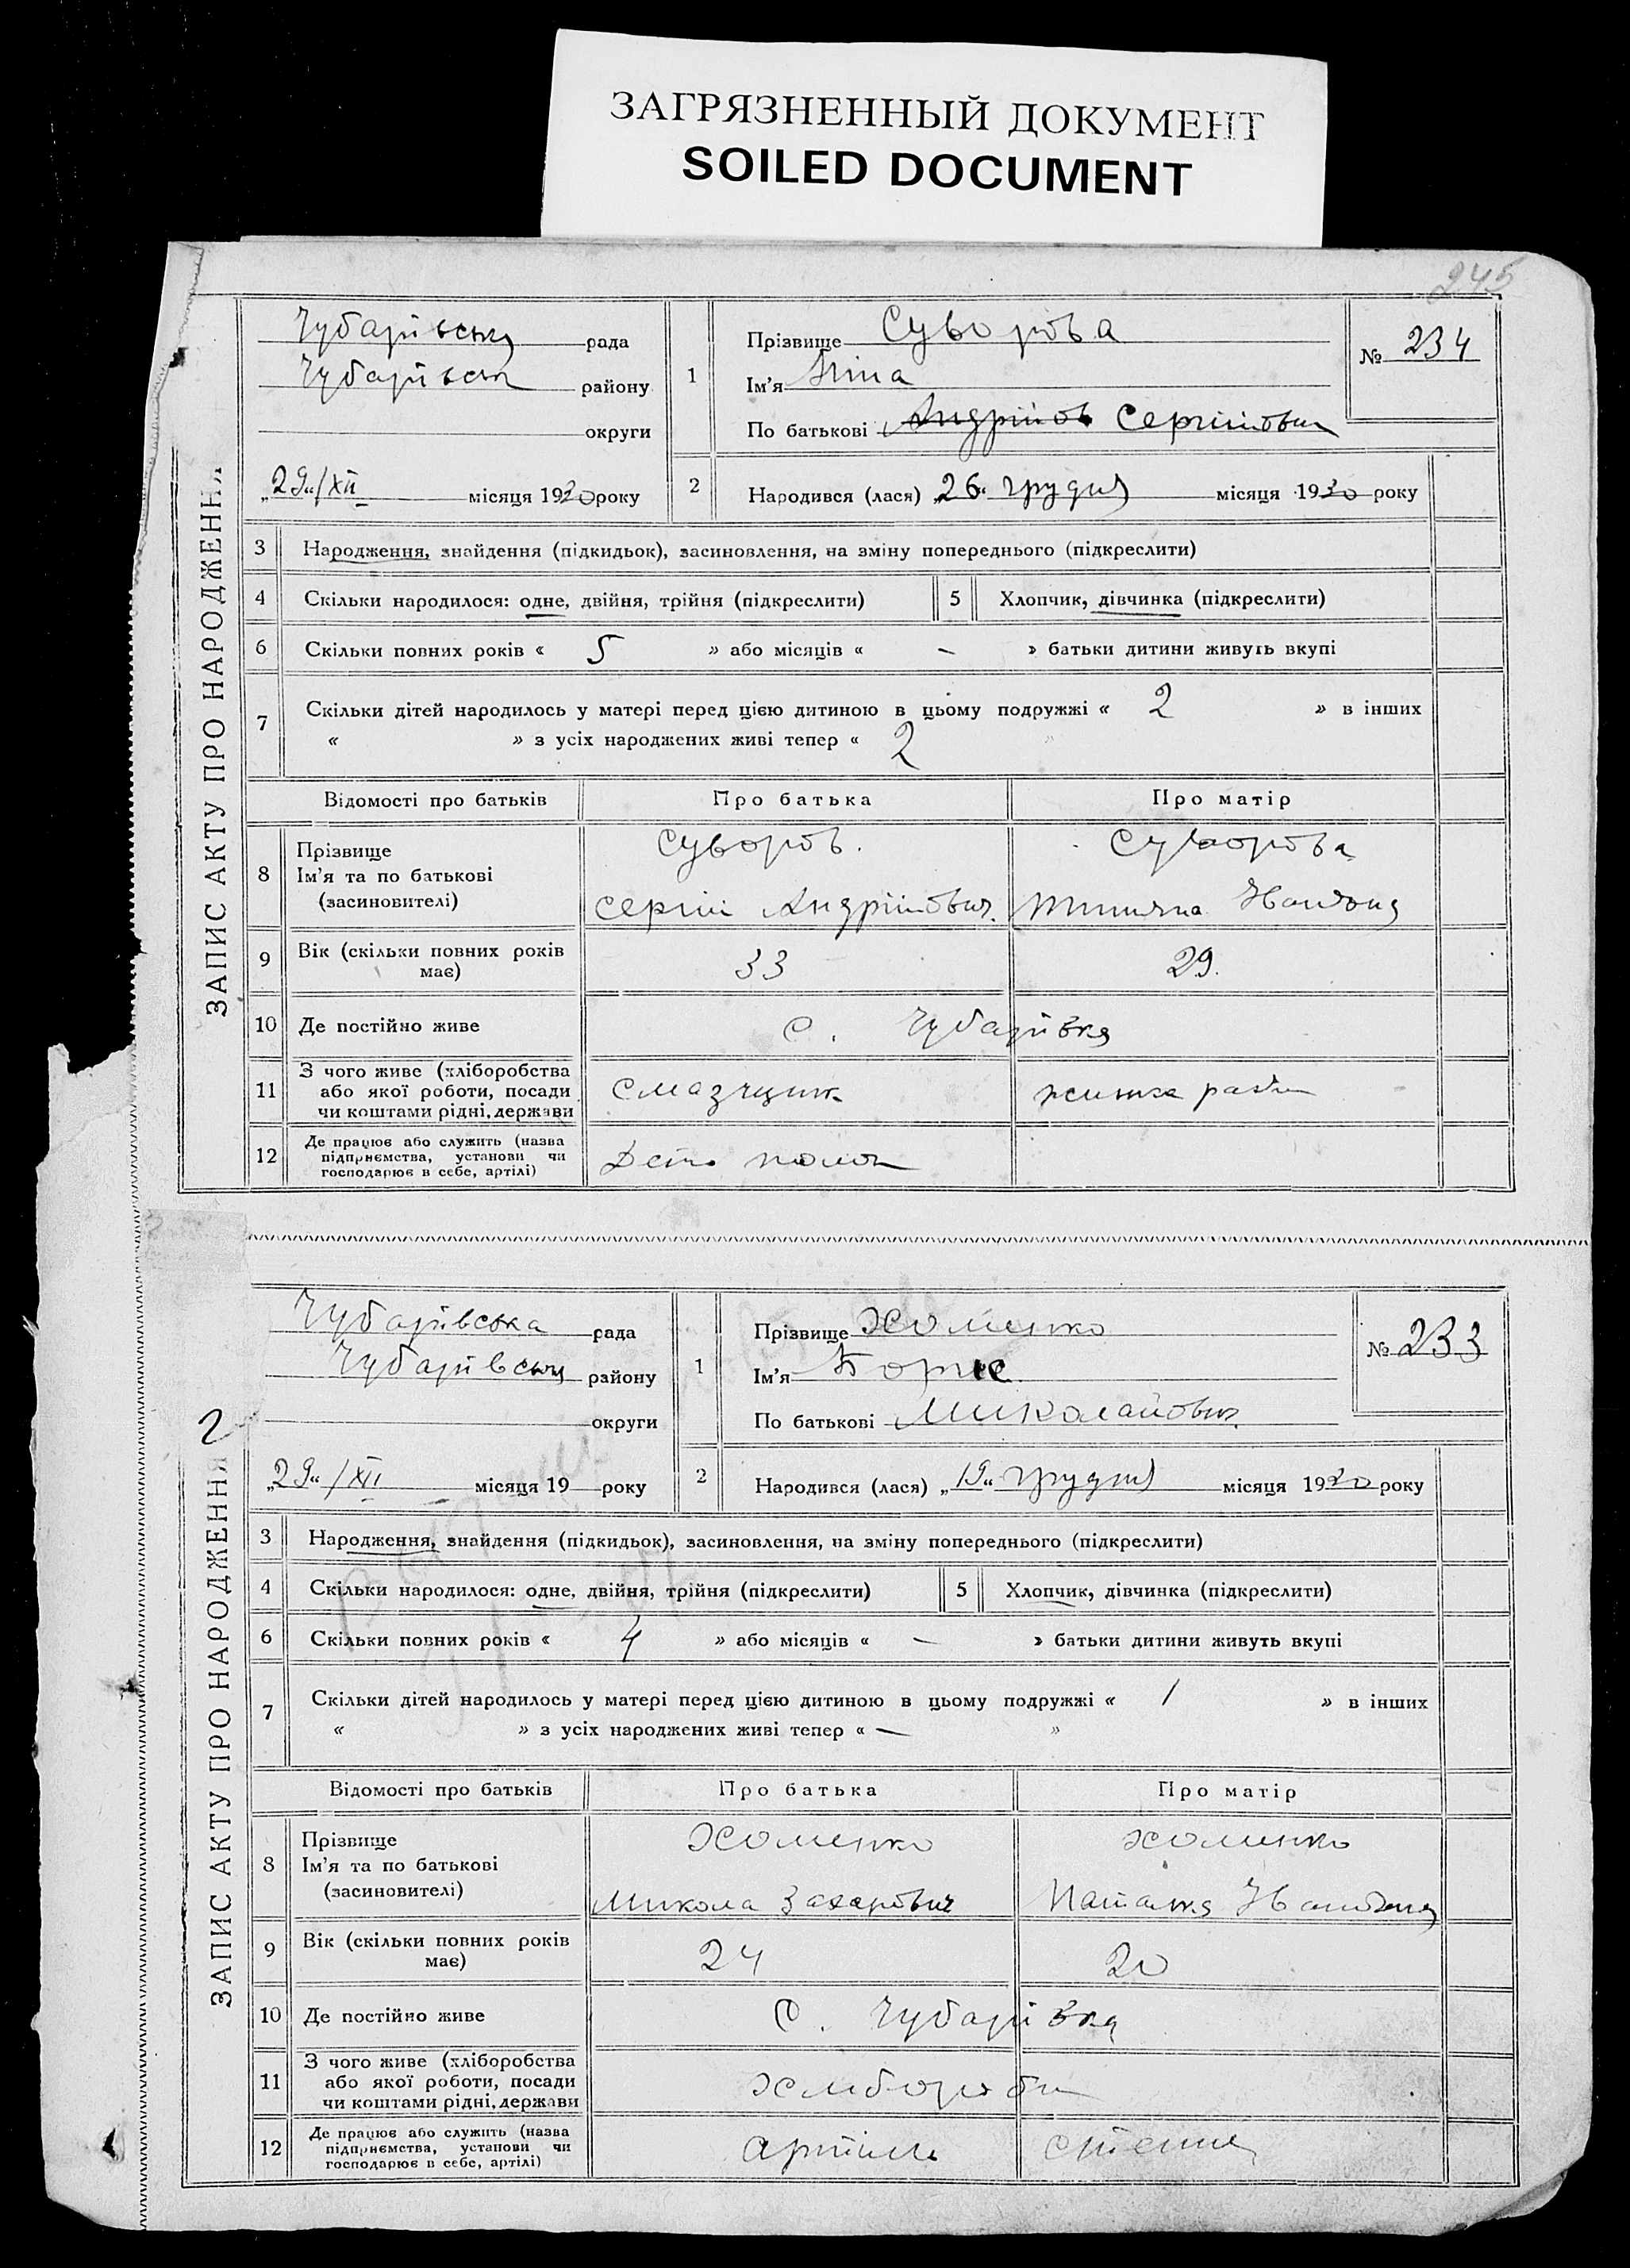 ЗАГРЯЗНЕННЫЙ ДОКУМЕНТ
SOILED DOCUMENT
245
ЗАПИС АКТУ ПРО НАРОДЖЕННЯ
рада
району
округи
„29“/XII місяця 1930 року
1
Прізвище Суворова
Ім'я
По батькові Андрійов Сергіївна
№ 234
2
Народився (лася) „26“ грудня місяця 1930 року
3 Народження, знайдення (підкидьок), засиновлення, на зміну попереднього (підкреслити)
4 Скільки народилося: одне, двійня, трійня (підкреслити)
5 Хлопчик, дівчинка (підкреслити)
6 Скільки повних років « 5 » або місяців « – » батьки дитини живуть вкупі
7 Скільки дітей народилось у матері перед цією дитиною в цьому подружжі « 2 » в інших
« » з усіх народжених живі тепер « 2 »
Відомості про батьків Про батька Про матір
8 Прізвище
Ім'я та по батькові
(засновителі)
Суворов.
Сергій Андрійович.
Суворова
9 Вік (скільки повних років
має)
33 29.
10 Де постійно живе с. Чубарівка
11 З чого живе (хліборобства
або якої роботи, посади
чи коштами рідні, держави
Смазчик
жинка
12 Де працює або служить (назва
підприємства, установи чи
господарює в себе, артілі)
Депо
ЗАПИС АКТУ ПРО НАРОДЖЕННЯ
Чубарівська рада
району
округи
„29“/XII місяця 19 року
1
Прізвище Хоменко
Ім'я Борис
По батькові Миколайович
№ 233
2
Народився (лася) „19“ грудня місяця 1930 року
3 Народження, знайдення (підкидьок), засиновлення, на зміну попереднього (підкреслити)
4 Скільки народилося: одне, двійня, трійня (підкреслити)
5 Хлопчик, дівчинка (підкреслити)
6 Скільки повних років « 4 » або місяців « – » батьки дитини живуть вкупі
7 Скільки дітей народилось у матері перед цією дитиною в цьому подружжі « 1 » в інших
« » з усіх народжених живі тепер « – »
Відомості про батьків Про батька Про матір
8 Прізвище
Ім'я та по батькові
(засиновителі)
Хоменко
Микола Захарович
Хоменко
Наталка
9 Вік (скільки повних років
має)
24 20
10 Де постійно живе С. Чубарівка
11 З чого живе (хліборобства
або якої роботи, посади
чи коштами рідні, держави
12 Де працює або служить (назва
підприємства, установи чи
господарює в себе, артілі)
артіль